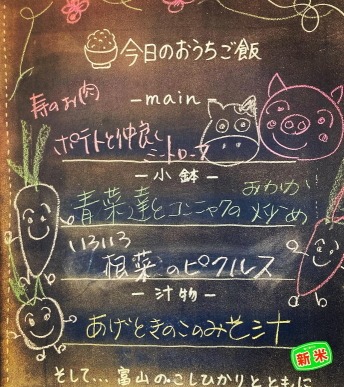 今日のおうちご飯
寿のお肉
-main-
ポテトと仲良し
ミートローフ
-小鉢-
青菜達とコンニャクの おかか炒め
いろいろ
根菜のピクルス
-汁物-
あげときのこのみそ汁
新米
そして…富山のこしひかりとともに